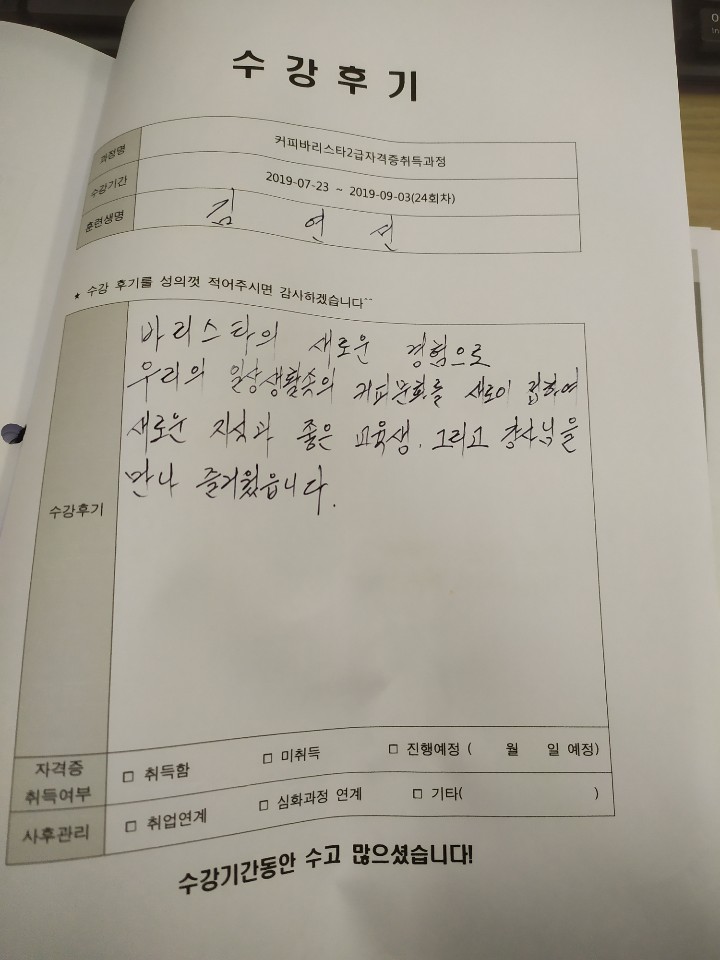 수강후기
과정명 커피바리스타2급자격증취득과정
수강기간 2019-07-23 ~ 2019-09-03(24회차)
훈련생명 김 연 선
★ 수강 후기를 성의껏 적어주시면 감사하겠습니다~~
수강후기
바리스타의 새로운 경험으로
우리의 일상생활속의 커피문화를 새로이 접하여
새로운 지식과 좋은 교육생, 그리고 강사님을
만나 즐거웠읍니다.
자격증 취득여부 □ 취득함 □ 미취득 □ 진행예정 ( 월 일 예정)
사후관리 □ 취업연계 □ 심화과정 연계 □ 기타( )
수강기간동안 수고 많으셨습니다!